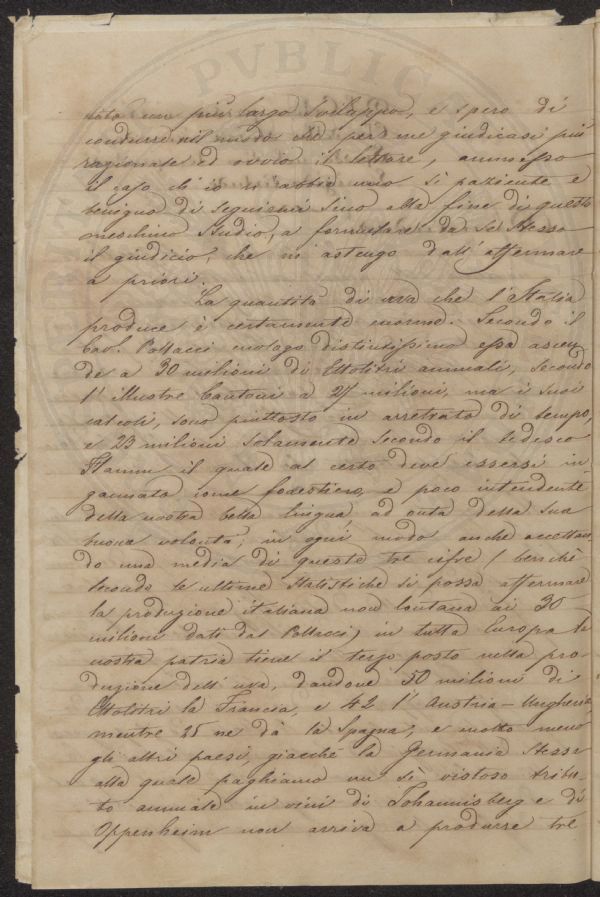 PVBLIC
tato un più largo sviluppo, e spero di
condurre nel modo che per me giudicasi più
razionale ed ovvio il lettore, ammesso
il caso ch'io n'abbia uno sì paziente e
benigno di seguirmi sino alla fine di questo
meschino studio, a formulare da sè stesso
il giudicio, che m'astengo dall'affermare
a priori.
La quantità di uva che l'Italia
produce è certamente enorme. Secondo il
Cav. Pollacci enologo distintissimo essa ascen-
de a 30 milioni di Ettolitri annuali, secondo
l'illustre Cantoni a 27 milioni, ma i suoi
calcoli, sono piuttosto in arretrato di tempo,
e 23 milioni solamente secondo il tedesco
Hamm il quale al certo deve essersi in
gannato come forestiero, e poco intendente
della nostra bella lingua ad onta della sua
buona volontà; in ogni modo anche accettan-
do una media di queste tre cifre (benchè
secondo le ultime statistiche si possa affermare
la produzione italiana non lontana ai 30
milioni dati dal Pollacci) in tutta Europa la
nostra patria tiene il terzo posto nella pro-
duzione dell'uva, dandone 50 milioni di
Ettolitri la Francia, e 42 l'Austria-Ungheria
mentre 25 ne dà la Spagna, e molto meno
gli altri paesi, giacchè la Germania stessa
alla quale paghiamo un sì vistoso tribu-
to annuale in vini di Johannisberg e di
Oppenheim non arriva a produrre tre